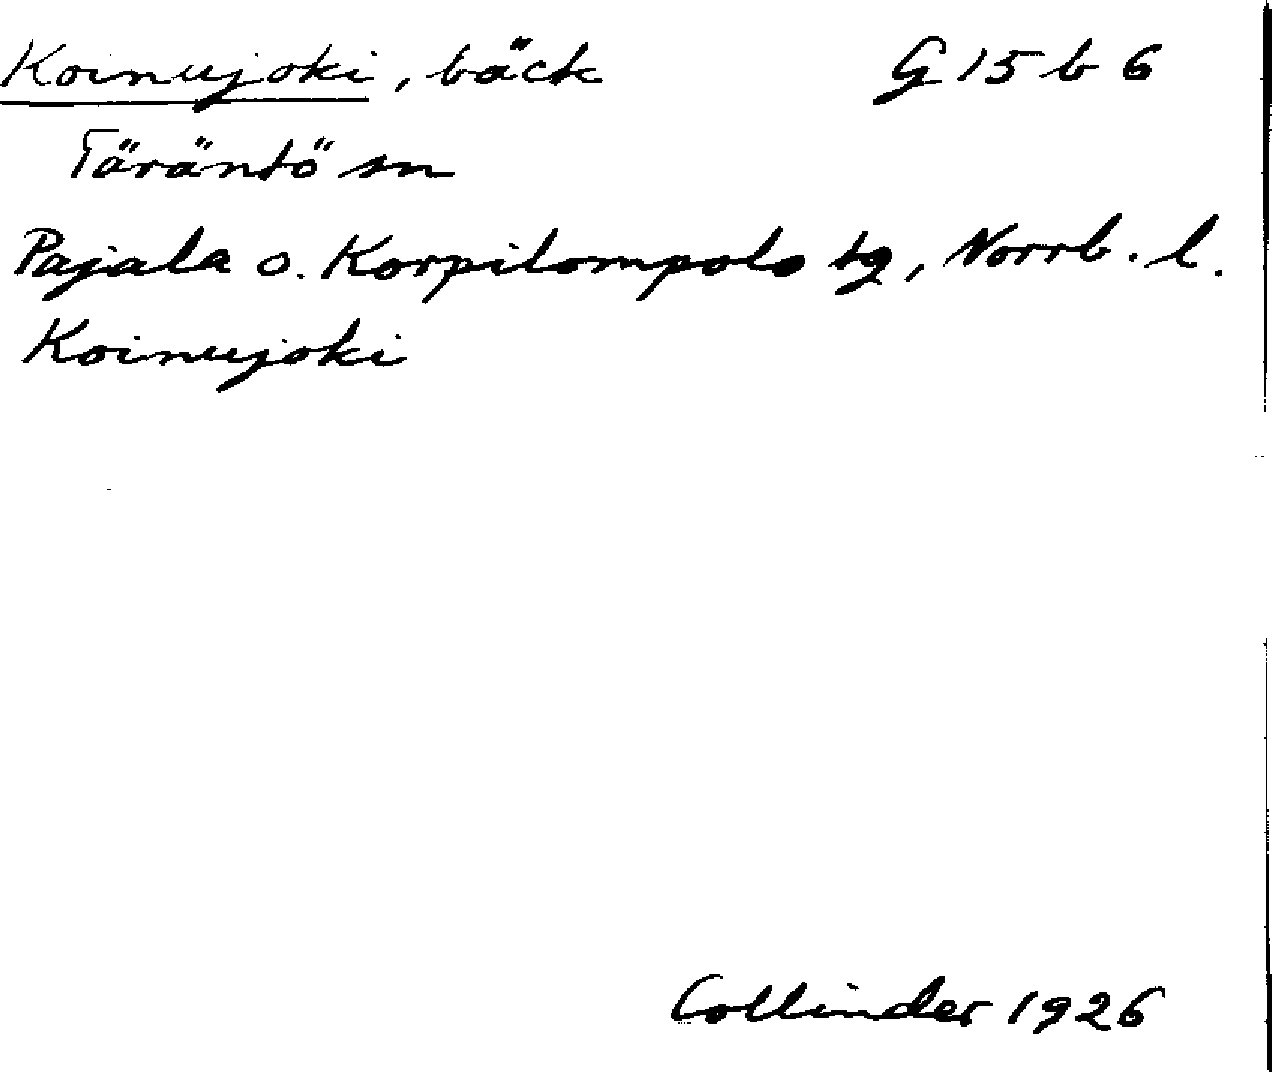 Koinujoki, bäck G 15 b 6
Täräntö sn
Pajala o. Korpilompolo tg, Norrb. l.
Koinujoki
Collinder 1926